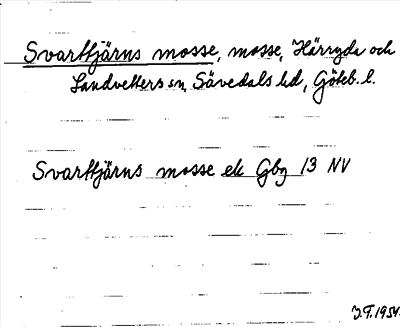 Svarttjärns mosse, mosse, Härryda och
Landvetters sn, Sävedals hd, Göteb. l.
Svarttjärns mosse ek Gbg 13 NV
J.F. 1954.